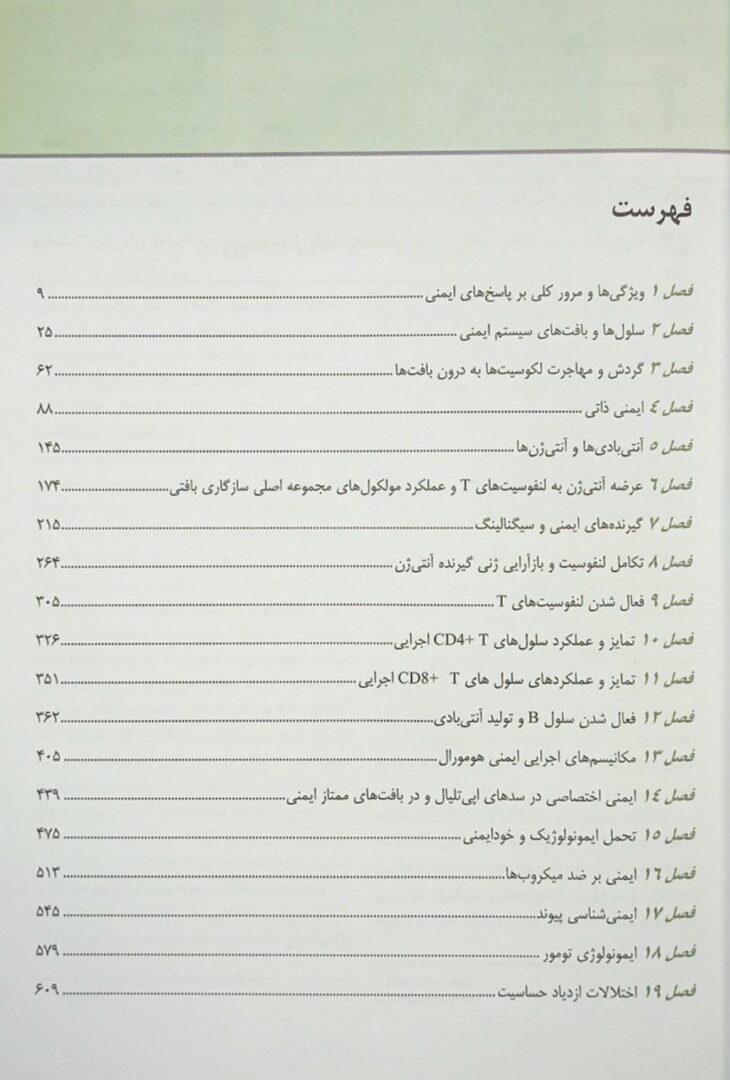 فهرست
فصل ۱ ویژگی‌ها و مرور کلی بر پاسخ‌های ایمنی ........ ۹
فصل ۲ سلول‌ها و بافت‌های سیستم ایمنی ........ ۲۵
فصل ۳ گردش و مهاجرت لکوسیت‌ها به درون بافت‌ها ........ ۶۲
فصل ۴ ایمنی ذاتی ........ ۸۸
فصل ۵ آنتی‌بادی‌ها و آنتی‌ژن‌ها ........ ۱۴۵
فصل ۶ عرضه آنتی‌ژن به لنفوسیت‌های T و عملکرد مولکول‌های مجموعه اصلی سازگاری بافتی ........ ۱۷۴
فصل ۷ گیرنده‌های ایمنی و سیگنالینگ ........ ۲۱۵
فصل ۸ تکامل لنفوسیت و بازآرایی ژنی گیرنده آنتی‌ژن ........ ۲۶۴
فصل ۹ فعال شدن لنفوسیت‌های T ........ ۳۰۵
فصل ۱۰ تمایز و عملکرد سلول‌های CD4+ T اجرایی ........ ۳۲۶
فصل ۱۱ تمایز و عملکردهای سلول های CD8+ T اجرایی ........ ۳۵۱
فصل ۱۲ فعال شدن سلول B و تولید آنتی‌بادی ........ ۳۶۲
فصل ۱۳ مکانیسم‌های اجرایی ایمنی هومورال ........ ۴۰۵
فصل ۱۴ ایمنی اختصاصی در سدهای اپی‌تلیال و در بافت‌های ممتاز ایمنی ........ ۴۳۹
فصل ۱۵ تحمل ایمونولوژیک و خودایمنی ........ ۴۷۵
فصل ۱۶ ایمنی بر ضد میکروب‌ها ........ ۵۱۳
فصل ۱۷ ایمنی‌شناسی پیوند ........ ۵۴۵
فصل ۱۸ ایمونولوژی تومور ........ ۵۷۹
فصل ۱۹ اختلالات ازدیاد حساسیت ........ ۶۰۹